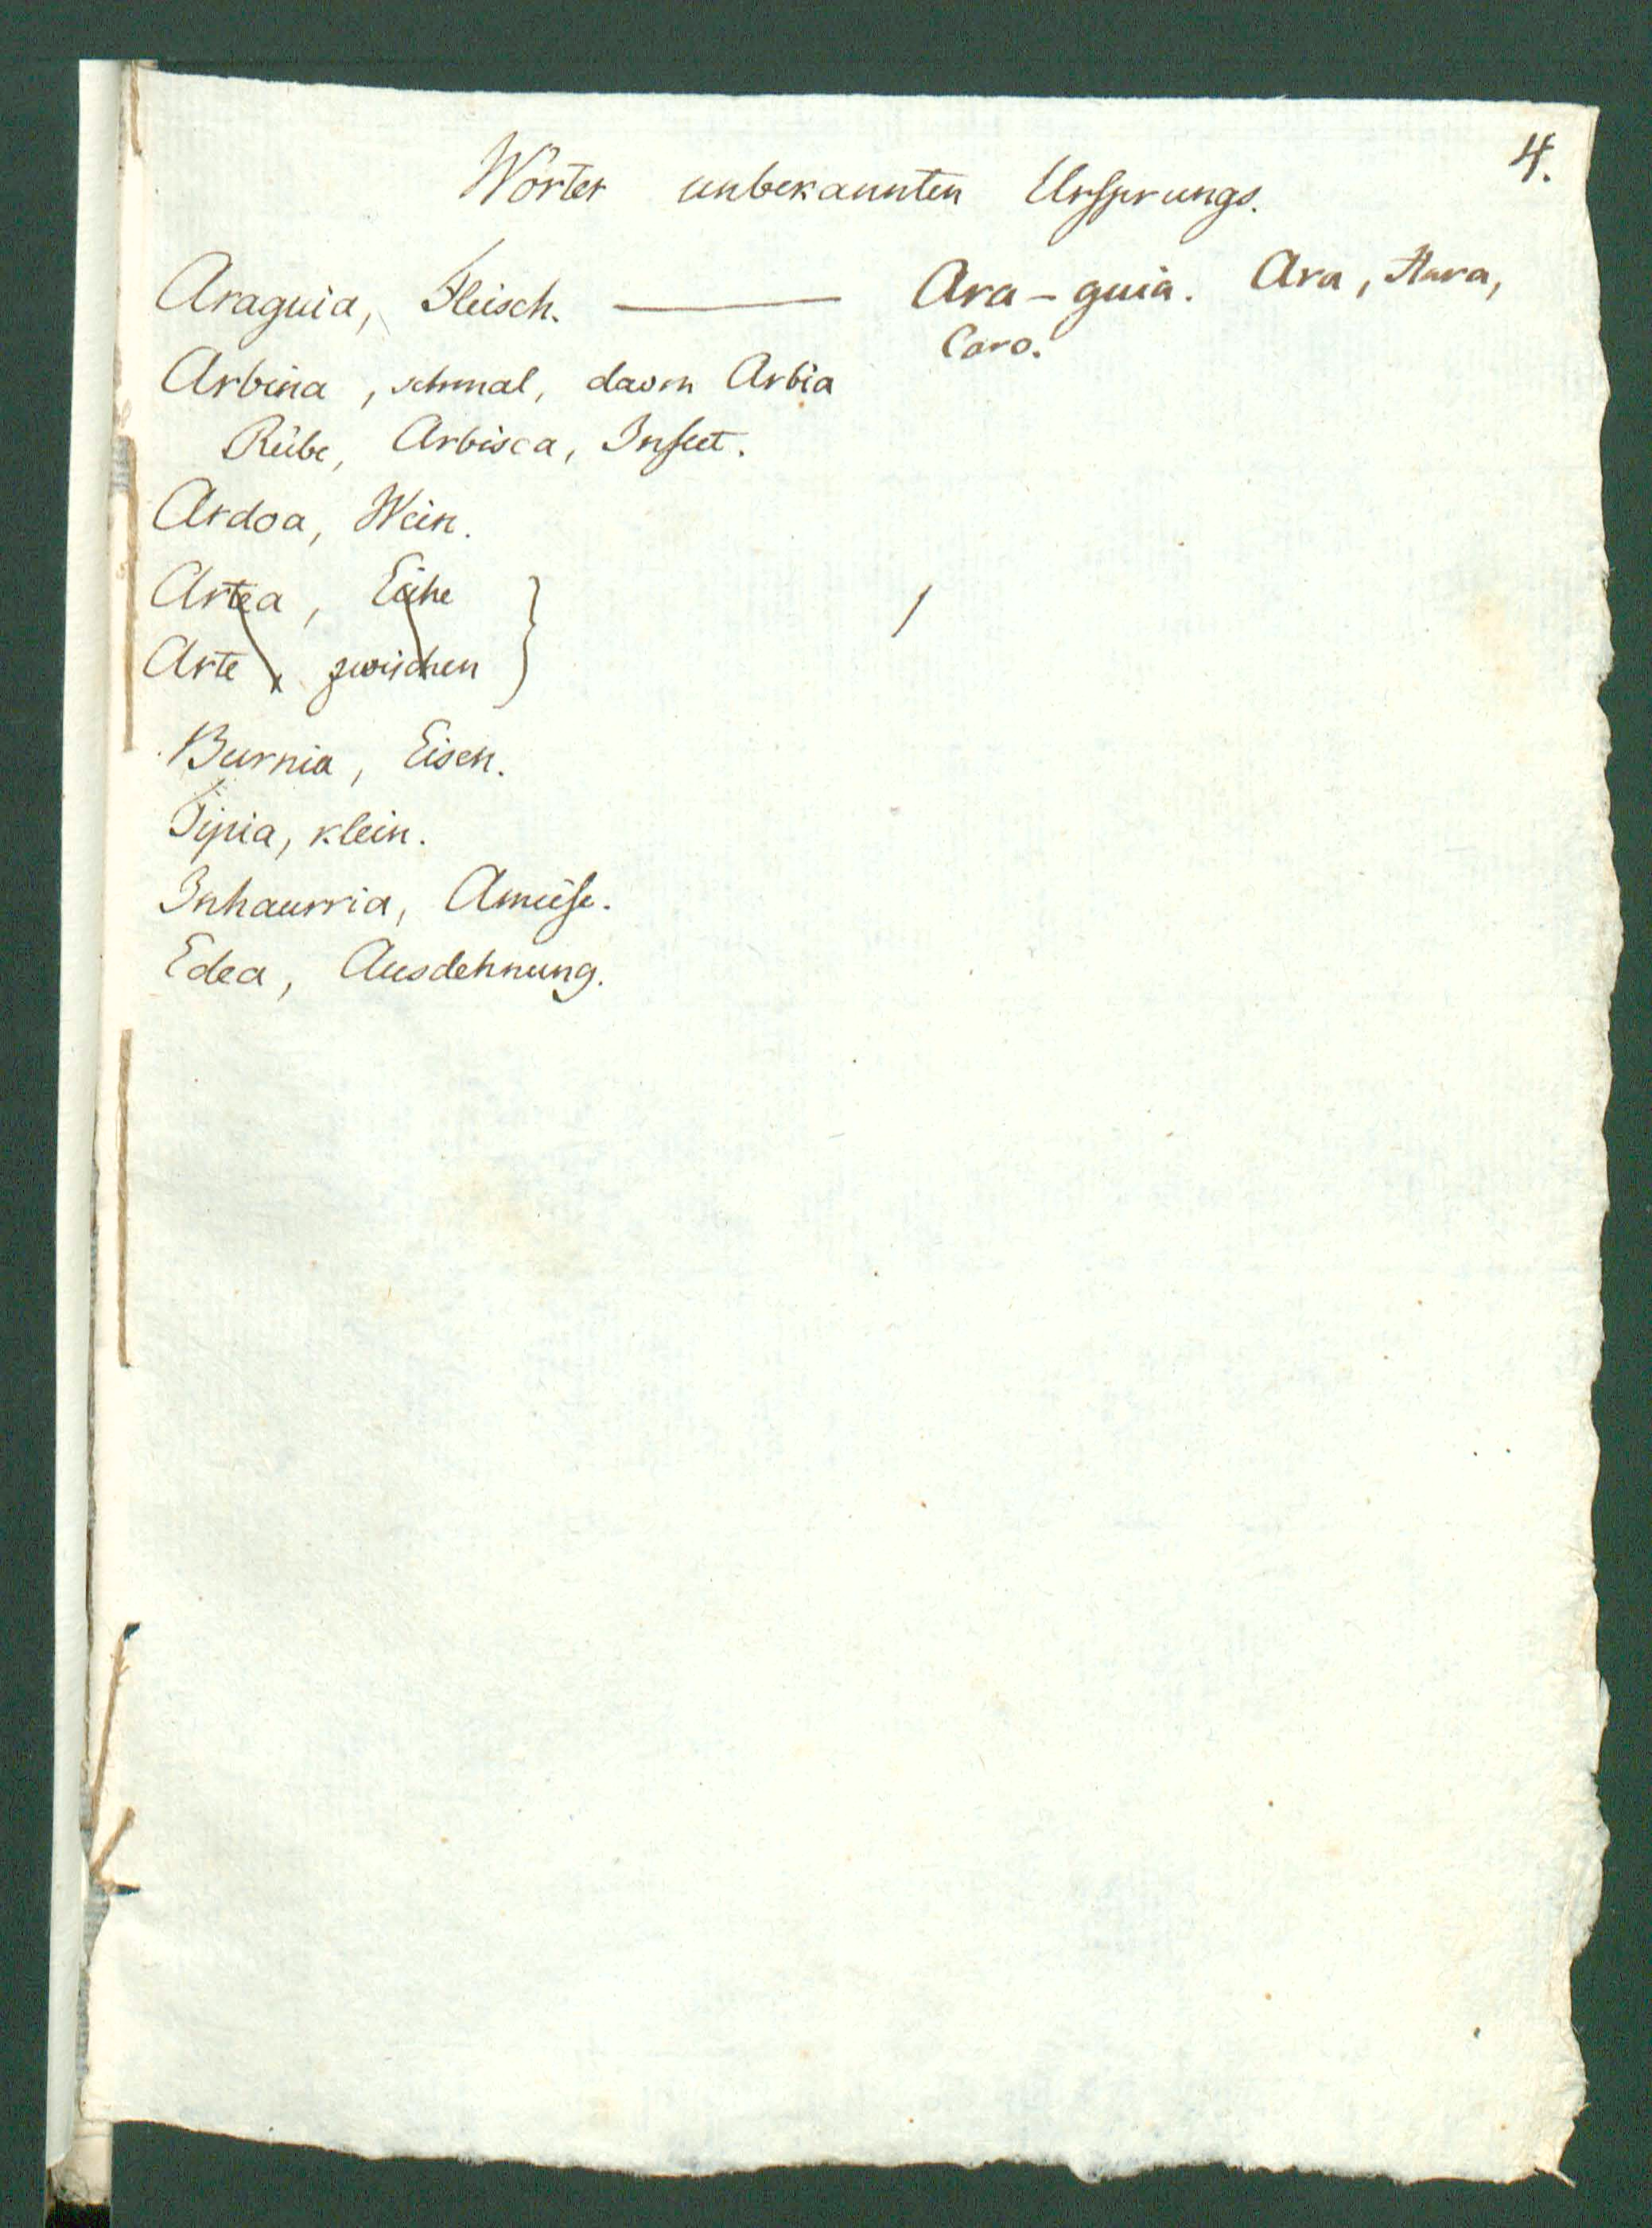 4.
Wörter unbekannten Ursprungs.
Araguia, Fleisch. — Ara-guia. Ara, Hara,
Caro.
Arbina, schmal, davon Arbia
Rübe, Arbisca, Insect.
Ardoa, Wein.
Artea, Eiche
Arte, zwischen
Burnia, Eisen.
Tipia, klein.
Inhaurria, Ameise.
Edea, Ausdehnung.